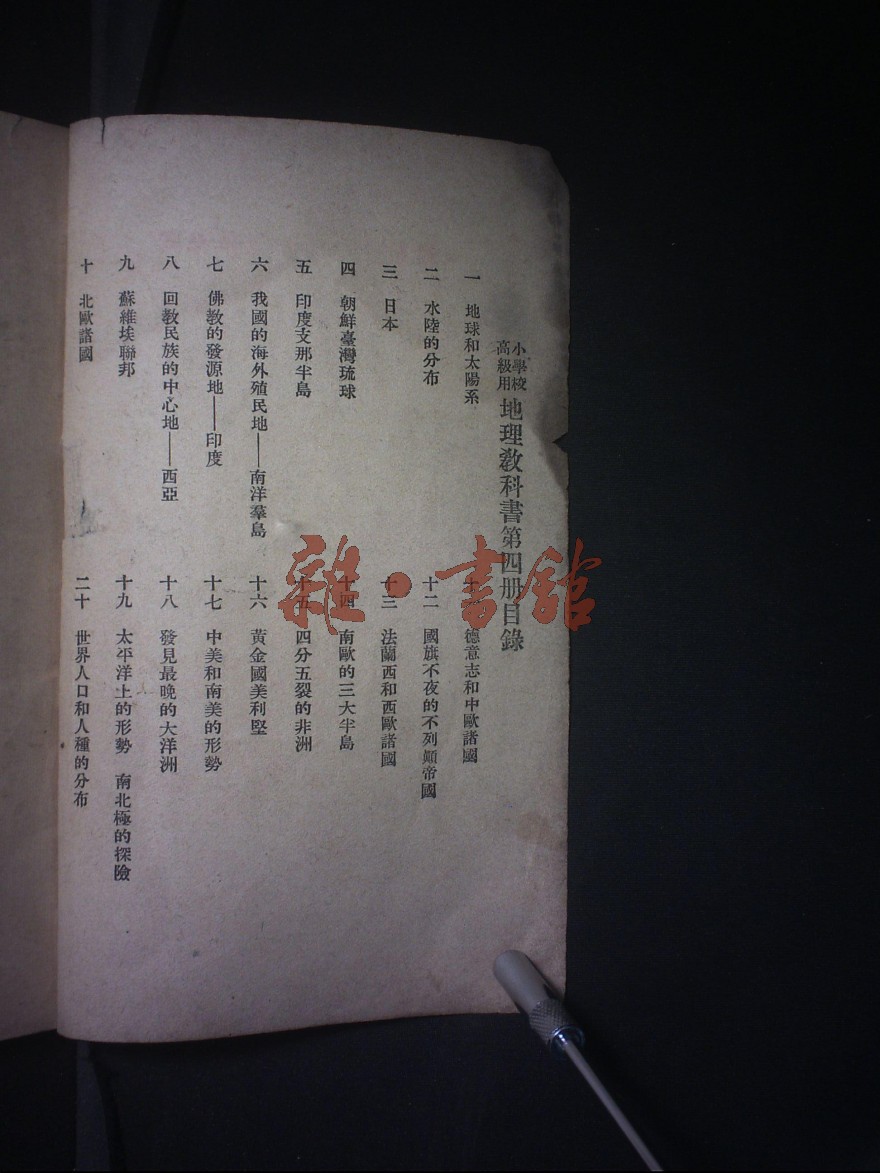 小學校
高級用
地理敎科書第四册目錄
一 地球和太陽系
二 水陸的分布
三 日本
四 朝鮮臺灣琉球
五 印度支那半島
六 我國的海外殖民地——南洋羣島
七 佛教的發源地——印度
八 回教民族的中心地——西亞
九 蘇維埃聯邦
十 北歐諸國
十一 德意志和中歐諸國
十二 國旗不夜的不列顚帝國
十三 法蘭西和西歐諸國
十四 南歐的三大半島
十五 四分五裂的非洲
十六 黃金國美利堅
十七 中美和南美的形勢
十八 發見最晚的大洋洲
十九 太平洋上的形勢 南北極的探險
二十 世界人口和人種的分布
雜·書館